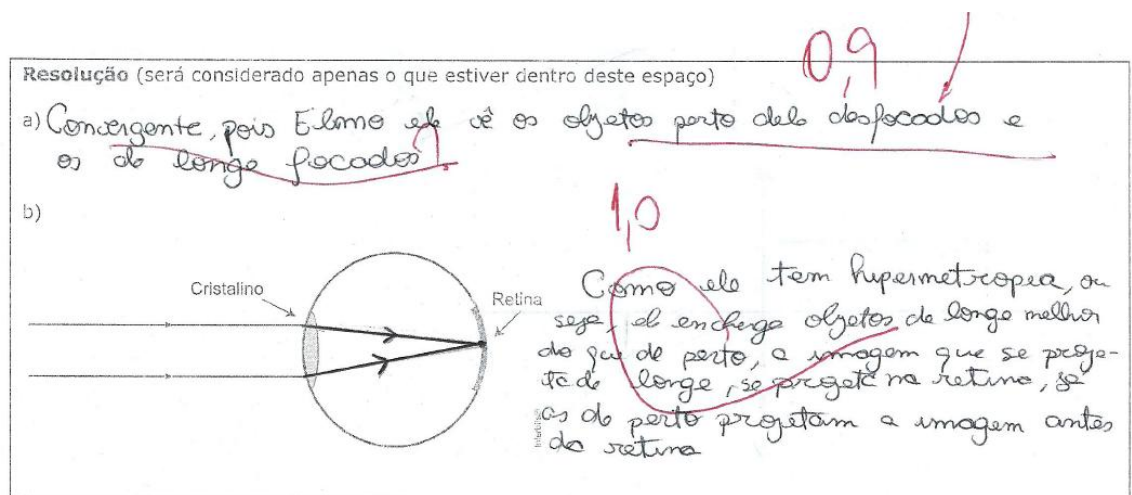 0,9
Resolução (será considerado apenas o que estiver dentro deste espaço)
a) Convergente, pois Elmo ele vê os objetos perto dele desfocados e
os de longe focados
b)
1,0
Cristalino
Retina
Como ele tem hipermetropea, ou
seja, ele encherga objetos de longe melhor
do que de perto, a imagem que se proje-
ta de longe, se projeta na retina, se
as de perto projetam a imagem antes
da retina